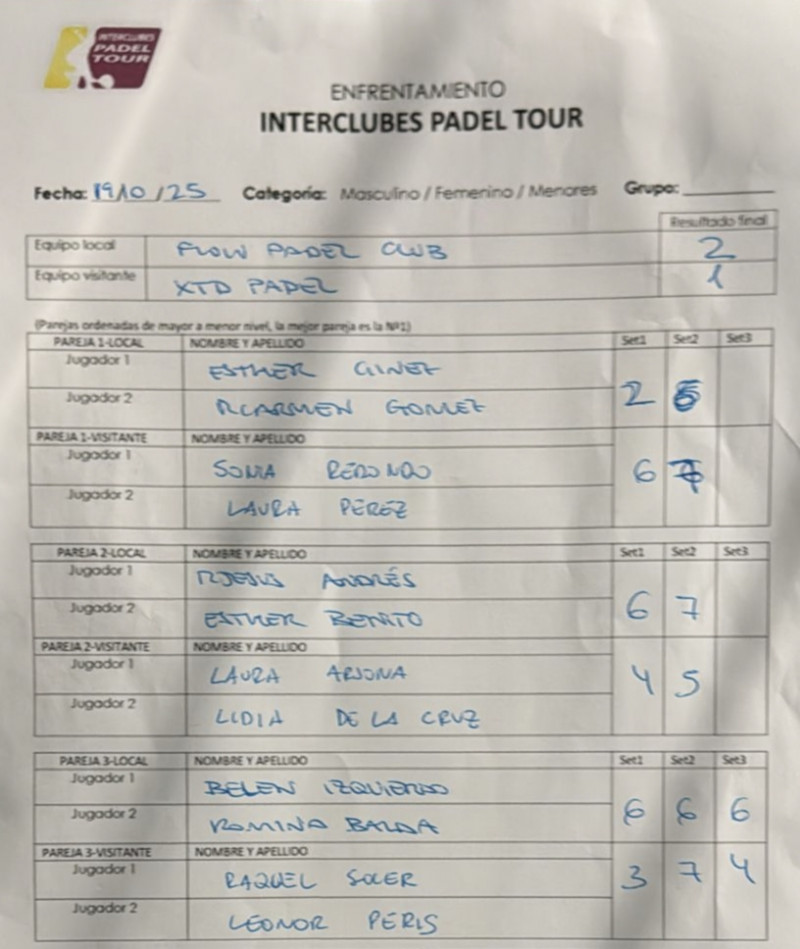 INTERCLUBES
PADEL
TOUR
ENFRENTAMIENTO
INTERCLUBES PADEL TOUR
Fecha: 19/10/25 Categoría: Masculino / Femenino / Menores Grupo:
Resultado final
Equipo local FLOW PADEL CLUB 2
Equipo visitante XTD PADEL 1
(Parejas ordenadas de mayor a menor nivel, la mejor pareja es la Nº1)
PAREJA 1-LOCAL NOMBRE Y APELLIDO Set1 Set2 Set3
Jugador 1 ESTHER GINEZ
2
Jugador 2 MCARMEN GOMEZ
PAREJA 1-VISITANTE NOMBRE Y APELLIDO
Jugador 1 SONIA REDONDO
6 7
Jugador 2 LAURA PEREZ
PAREJA 2-LOCAL NOMBRE Y APELLIDO Set1 Set2 Set3
Jugador 1 MJESUS ANDRÉS
6 7
Jugador 2 ESTHER BENITO
PAREJA 2-VISITANTE NOMBRE Y APELLIDO
Jugador 1 LAURA ARJONA
4 5
Jugador 2 LIDIA DE LA CRUZ
PAREJA 3-LOCAL NOMBRE Y APELLIDO Set1 Set2 Set3
Jugador 1 BELEN IZQUIERDO
6 6 6
Jugador 2 ROMINA BALDA
PAREJA 3-VISITANTE NOMBRE Y APELLIDO
Jugador 1 RAQUEL SOLER
3 7 4
Jugador 2 LEONOR PERIS